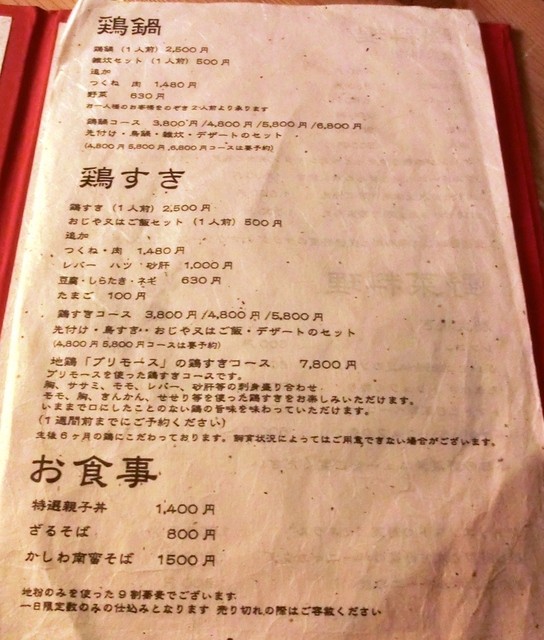 鶏鍋
鶏鍋（1人前）2,500円
雑炊セット（1人前）500円
追加
つくね 肉 1,480円
野菜 630円
お一人様のお客様をのぞき2人前より承ります
鶏鍋コース 3,800円/4,800円/5,800円/6,800円
先付け・鳥鍋・雑炊・デザートのセット
(4,800円 5,800円 6,800円コースは要予約)
鶏すき
鶏すき（1人前）2,500円
おじや又はご飯セット（1人前）500円
追加
つくね・肉 1,480円
レバー ハツ 砂肝 1,000円
豆腐・しらたき・ネギ 630円
たまご 100円
鶏すきコース 3,800円/4,800円/5,800円
先付け・鳥すき・おじや又はご飯・デザートのセット
(4,800円 5,800円コースは要予約)
地鶏「プリモース」の鶏すきコース 7,800円
プリモースを使った鶏すきコースです。
胸、ササミ、モモ、レバー、砂肝等の刺身盛り合わせ
モモ、胸、きんかん、せせり等を使った鶏すきをお楽しみいただけます。
いままで口にしたことのない鶏の旨味を味わっていただけます。
(1週間前までにご予約ください)
生後6ヶ月の鶏にこだわっております。飼育状況によってはご用意できない場合がございます。
お食事
特選親子丼 1,400円
ざるそば 800円
かしわ南蛮そば 1500円
地粉のみを使った9割蕎麦でございます
一日限定数のみの仕込みとなります 売り切れの際はご容赦ください